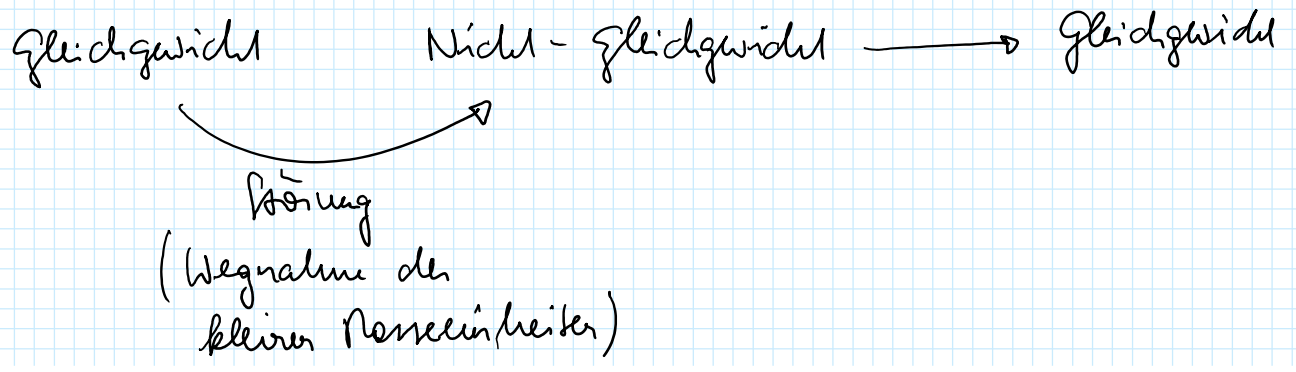 Gleichgewicht Nicht - Gleichgewicht → Gleichgewicht
Störung
(Wegnahme der
kleinen Masseeinheiten)